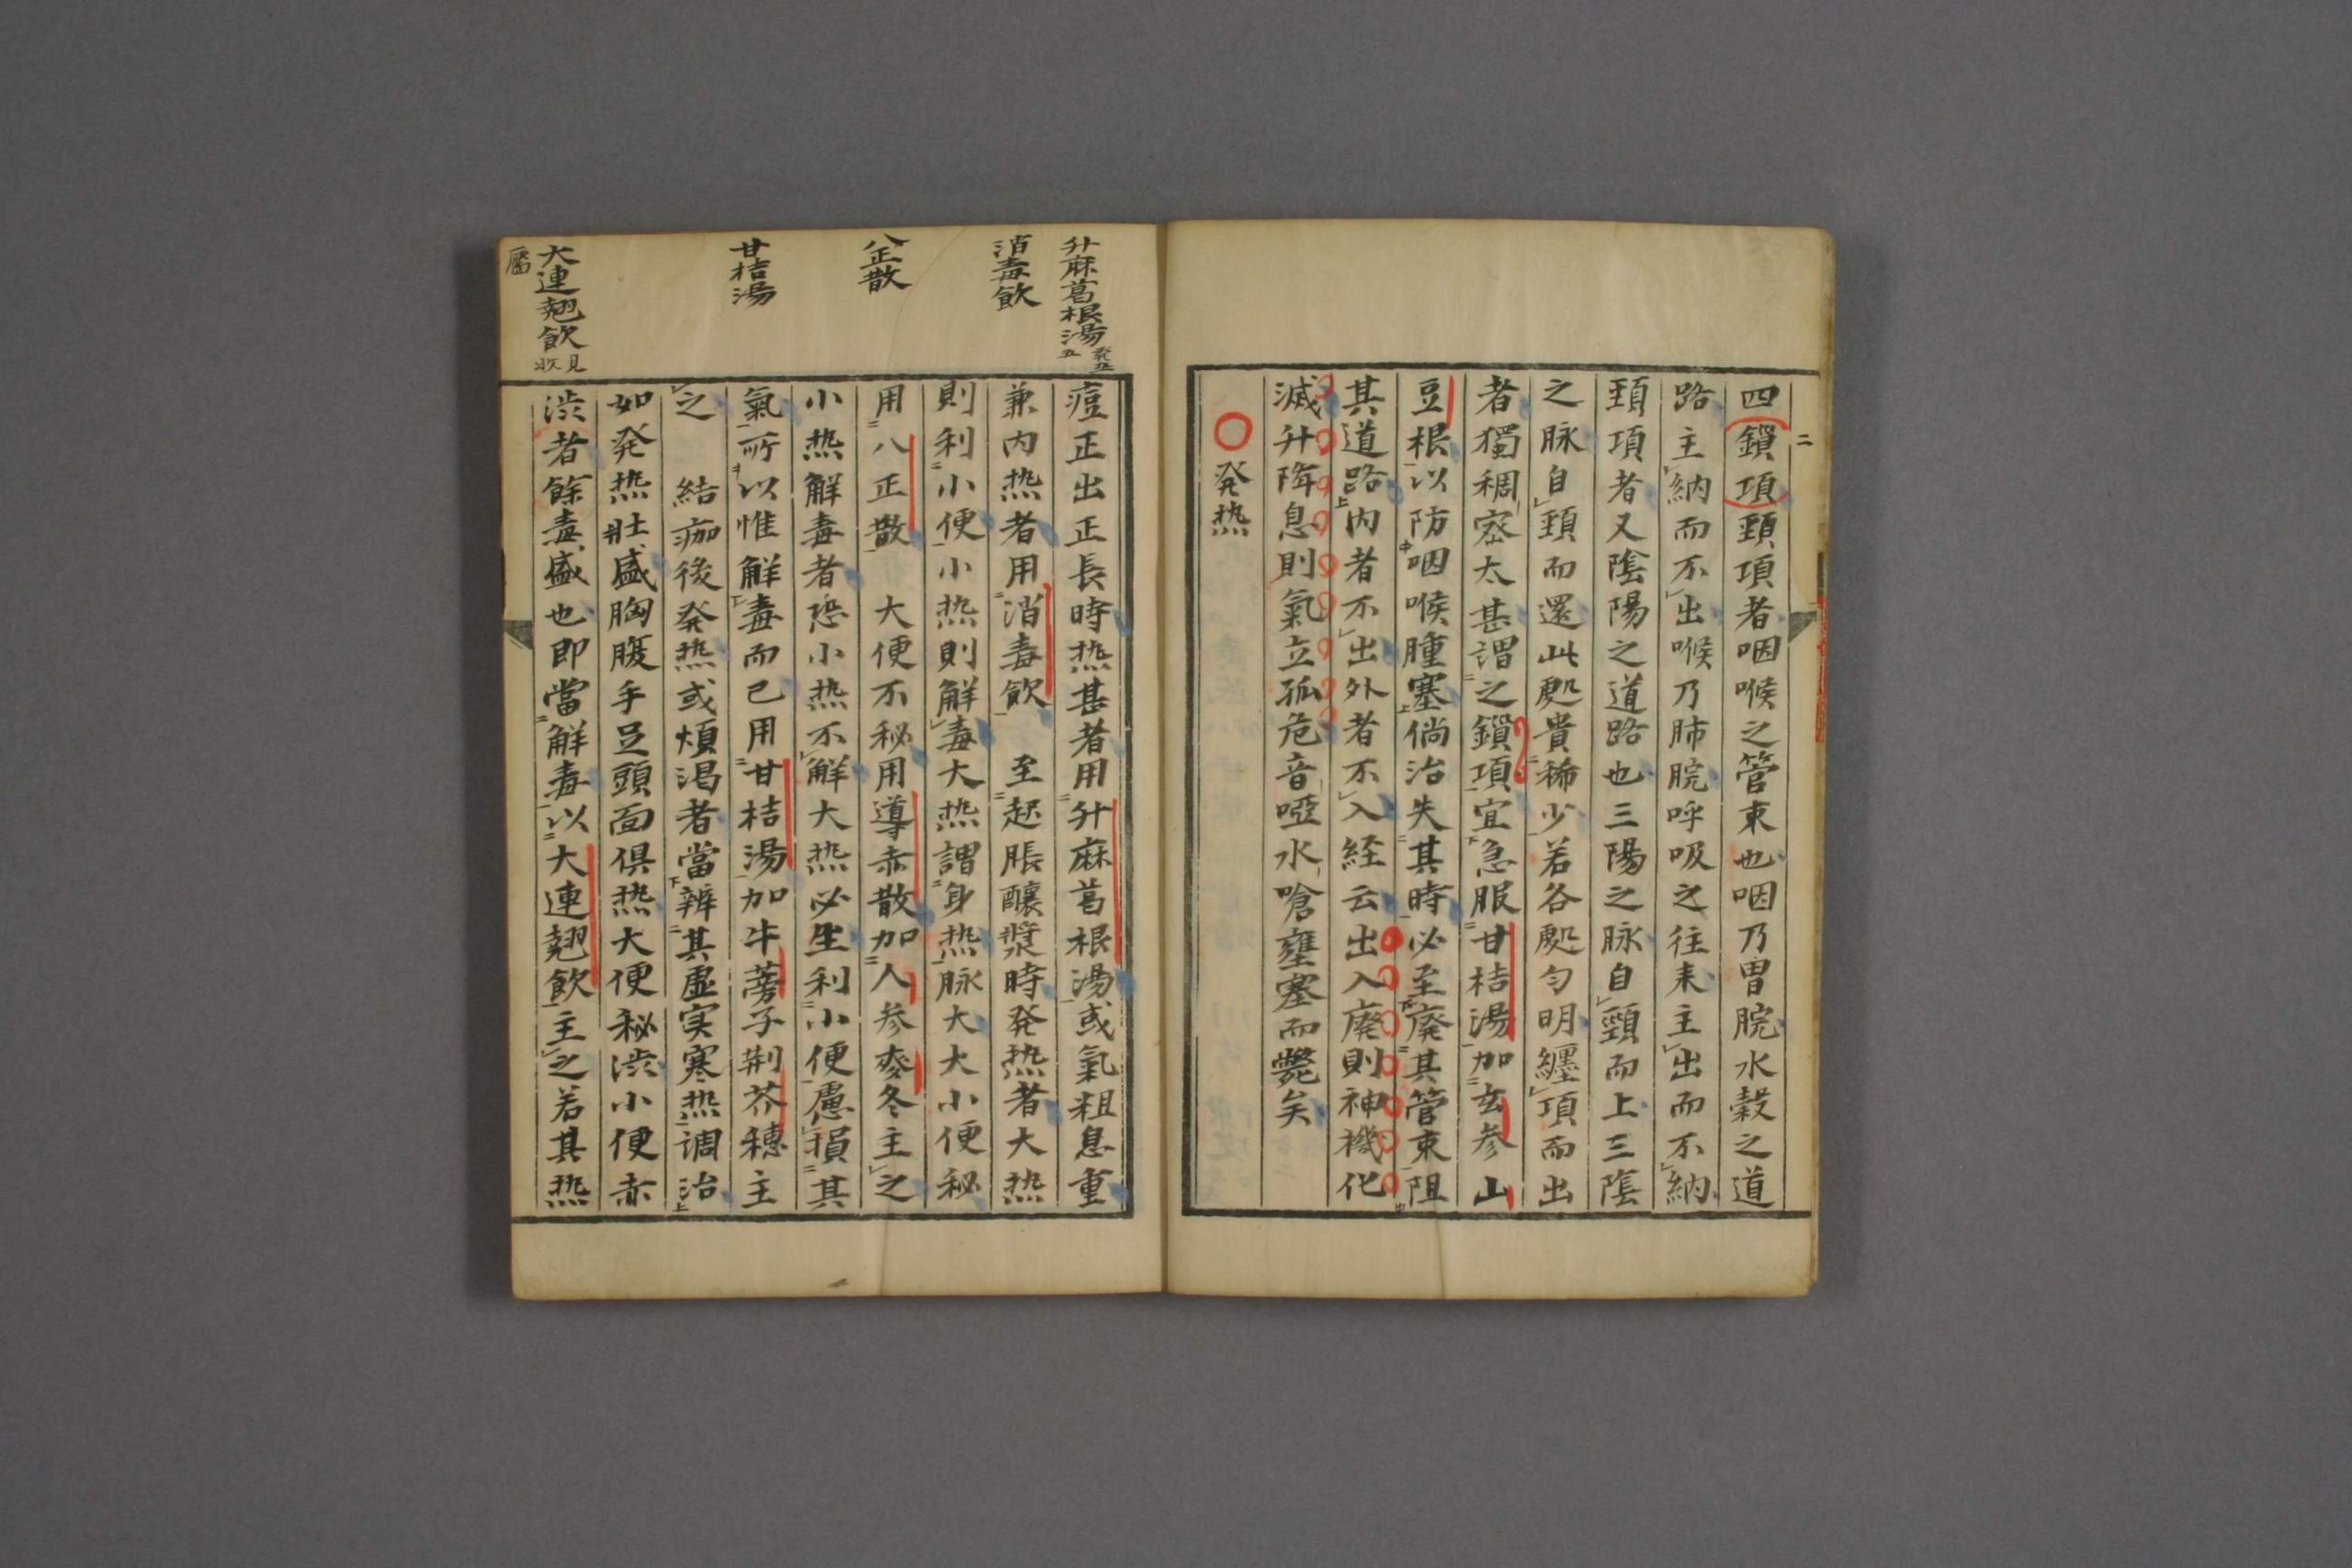 二
四鎖項頚項者咽喉之管束也咽乃胃脘水穀之道
路主納而不出喉乃肺脘呼吸之往来主出而不納
頚項者又陰陽之道路也三陽之脉自頸而上三陰
之脉自頚而還此處貴稀少若各處匀明纒項而出
者獨稠密太甚謂之鎖項宜急服甘桔湯加玄参山
豆根以防咽喉腫塞倘治失其時必至廃其管束阻
其道路内者不出外者不入経云出入廃則神機化
滅升降息則氣立孤危音啞水嗆壅塞而斃矣
〇発热
升麻葛根湯
消毒飲
八正散
甘桔湯
大連翹飲見
痘正出正長時热甚者用升麻葛根湯或氣粗息重
兼内热者用消毒飲 至起脹釀漿時発热者大热
則利小便小热則解毒大热謂身热脉大大小便秘
用八正散 大便不秘用導赤散加人参麥冬主之
小热解毒者恐小热不解大热必生利小便慮損其
氣所以惟解毒而已用甘桔湯加牛蒡子荆芥穗主
之 結痂後発热或煩渇者當辨其虚実寒热調治
如発热壮盛胸腹手足頭面倶热大便秘渋小便赤
渋者餘毒盛也即當解毒以大連翹飲主之若其热